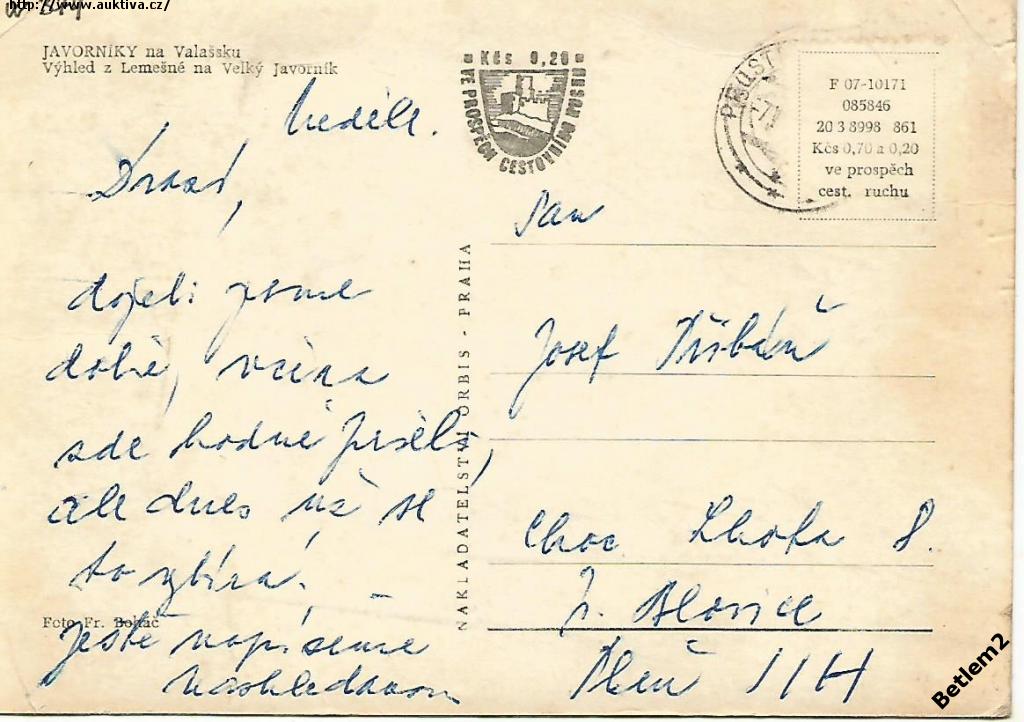 http://www.auktiva.cz/
JAVORNÍKY na Valašsku
Výhled z Lemešné na Velký Javorník
Neděle.
Drazí,
dojeli jsme
dobře, včera
zde hodně pršelo,
ale dnes už se
to vybírá.
Ještě napíšeme
Nashledanou
Foto Fr. Boháč
Kčs 0,20
VE PROSPĚCH CESTOVNÍHO RUCHU
NAKLADATELSTVÍ ORBIS - PRAHA
F 07-10171
085846
20 3 8998 861
Kčs 0,70 a 0,20
ve prospěch
cest. ruchu
Pan
Josef
Choc. Lhota 8.
p. Blovice
Plzeň JIH
Betlem2